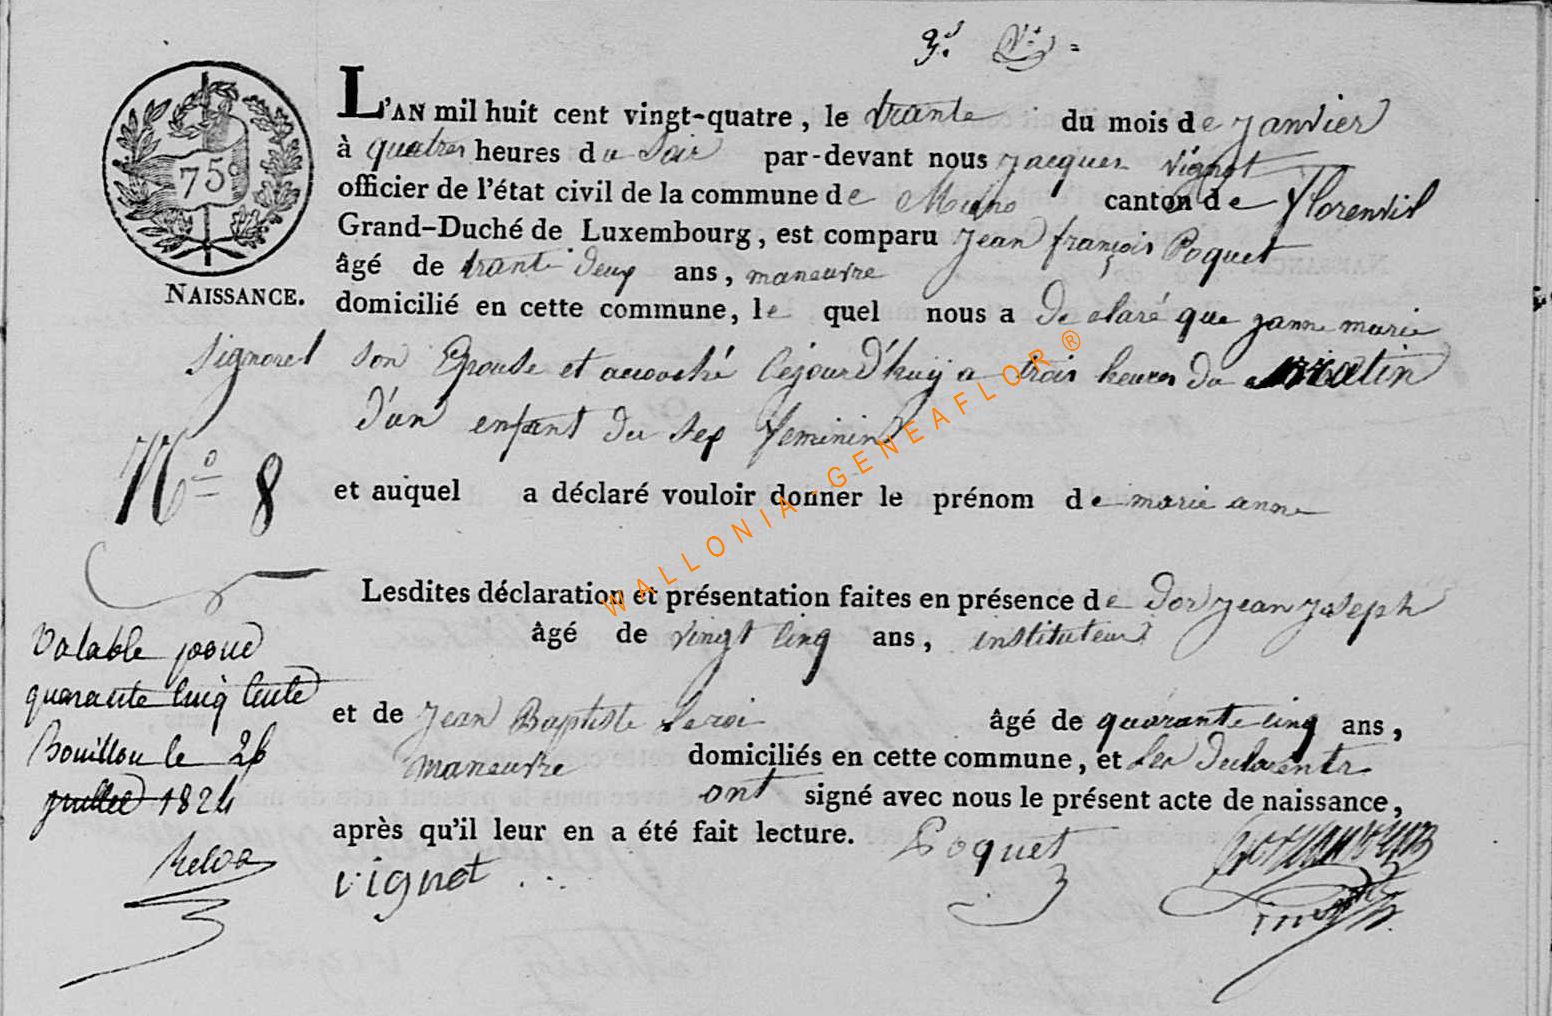 L'AN mil huit cent vingt-quatre, le trante du mois de janvier
75c
à quatres heures du Soir par-devant nous jacques vignet
officier de l'état civil de la commune de Muno canton de florenvil
Grand-Duché de Luxembourg, est comparu jean françois Poquet
âgé de trante deux ans, maneuvre
NAISSANCE.
domicilié en cette commune, le quel nous a declaré que janne marie
Signorel son Epouse et accouché cejourd'huÿ a trois heures du matin
d'un enfant du sex feminin
No 8
et auquel a déclaré vouloir donner le prénom de marie anne
Lesdites déclaration et présentation faites en présence de dor jean joseph
âgé de vingt cinq ans, instituteur
et de jean Baptiste Leroi âgé de quarante cinq ans,
maneuvre domiciliés en cette commune, et Les declarents
ont signé avec nous le présent acte de naissance,
après qu'il leur en a été fait lecture.
Poquet
vignet
Valable pour
quarante cinq cents
Bouillon le 26
juillet 1824
WALLONIA-GENEAFLOR®